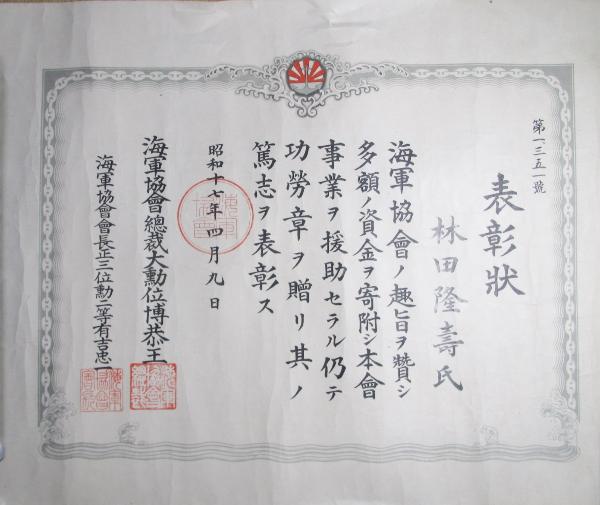 第一三五一號
表彰狀
林田隆壽氏
海軍協會ノ趣旨ヲ贊シ
多額ノ資金ヲ寄附シ本會
事業ヲ援助セラル仍テ
功勞章ヲ贈リ其ノ
篤志ヲ表彰ス
昭和十七年四月九日
海軍協會總裁大勳位博恭王
海軍協會會長正三位勳二等有吉忠一